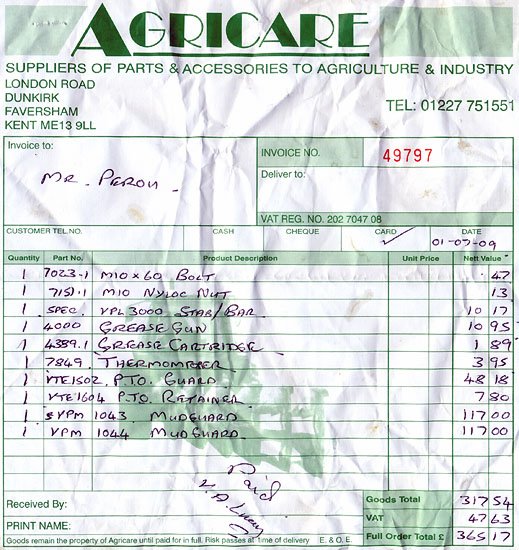 AGRICARE
SUPPLIERS OF PARTS & ACCESSORIES TO AGRICULTURE & INDUSTRY
LONDON ROAD
DUNKIRK
FAVERSHAM
KENT ME13 9LL
TEL: 01227 751551
Invoice to:
Mr. Perou
INVOICE NO. 49797
Deliver to:
VAT REG. NO. 202 7047 08
CUSTOMER TEL.NO. CASH CHEQUE CARD ✓ DATE 01-07-09
Quantity Part No. Product Description Unit Price Nett Value
1 7023.1 M10 x 60 BOLT .47
1 7151.1 M10 NYLOC NUT .13
1 SPEC. VPL3000 STAB/BAR 10 17
1 4000 GREASE GUN 10 95
1 4389.1 GREASE CARTRIDGE 1 89
1 7849. THERMOMETER 3 95
1 VTE1502 P.T.O. GUARD. 48 18
1 VTE1604 P.T.O. RETAINER 7 80
1 VPM 1043 MUDGUARD 117 00
1 VPM 1044 MUDGUARD 117 00
Paid
Received By:
PRINT NAME:
Goods Total 317 54
VAT 47 63
Full Order Total £ 365 17
Goods remain the property of Agricare until paid for in full. Risk passes at time of delivery E. & O. E.